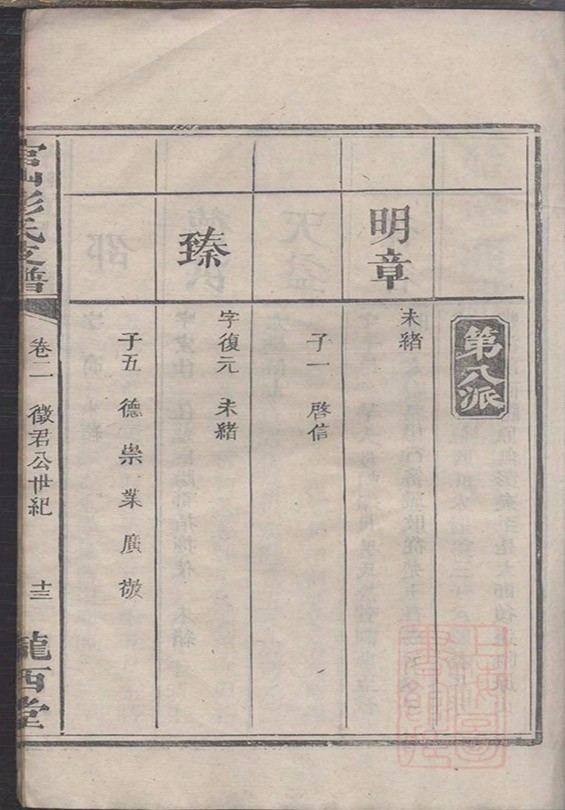 第八派
明章
未緒
子一 啓信
臻
字復元 未緒
子五 德 崇 業 廣 敬
彭氏支譜
卷二 徵君公世紀 十三
隴西堂